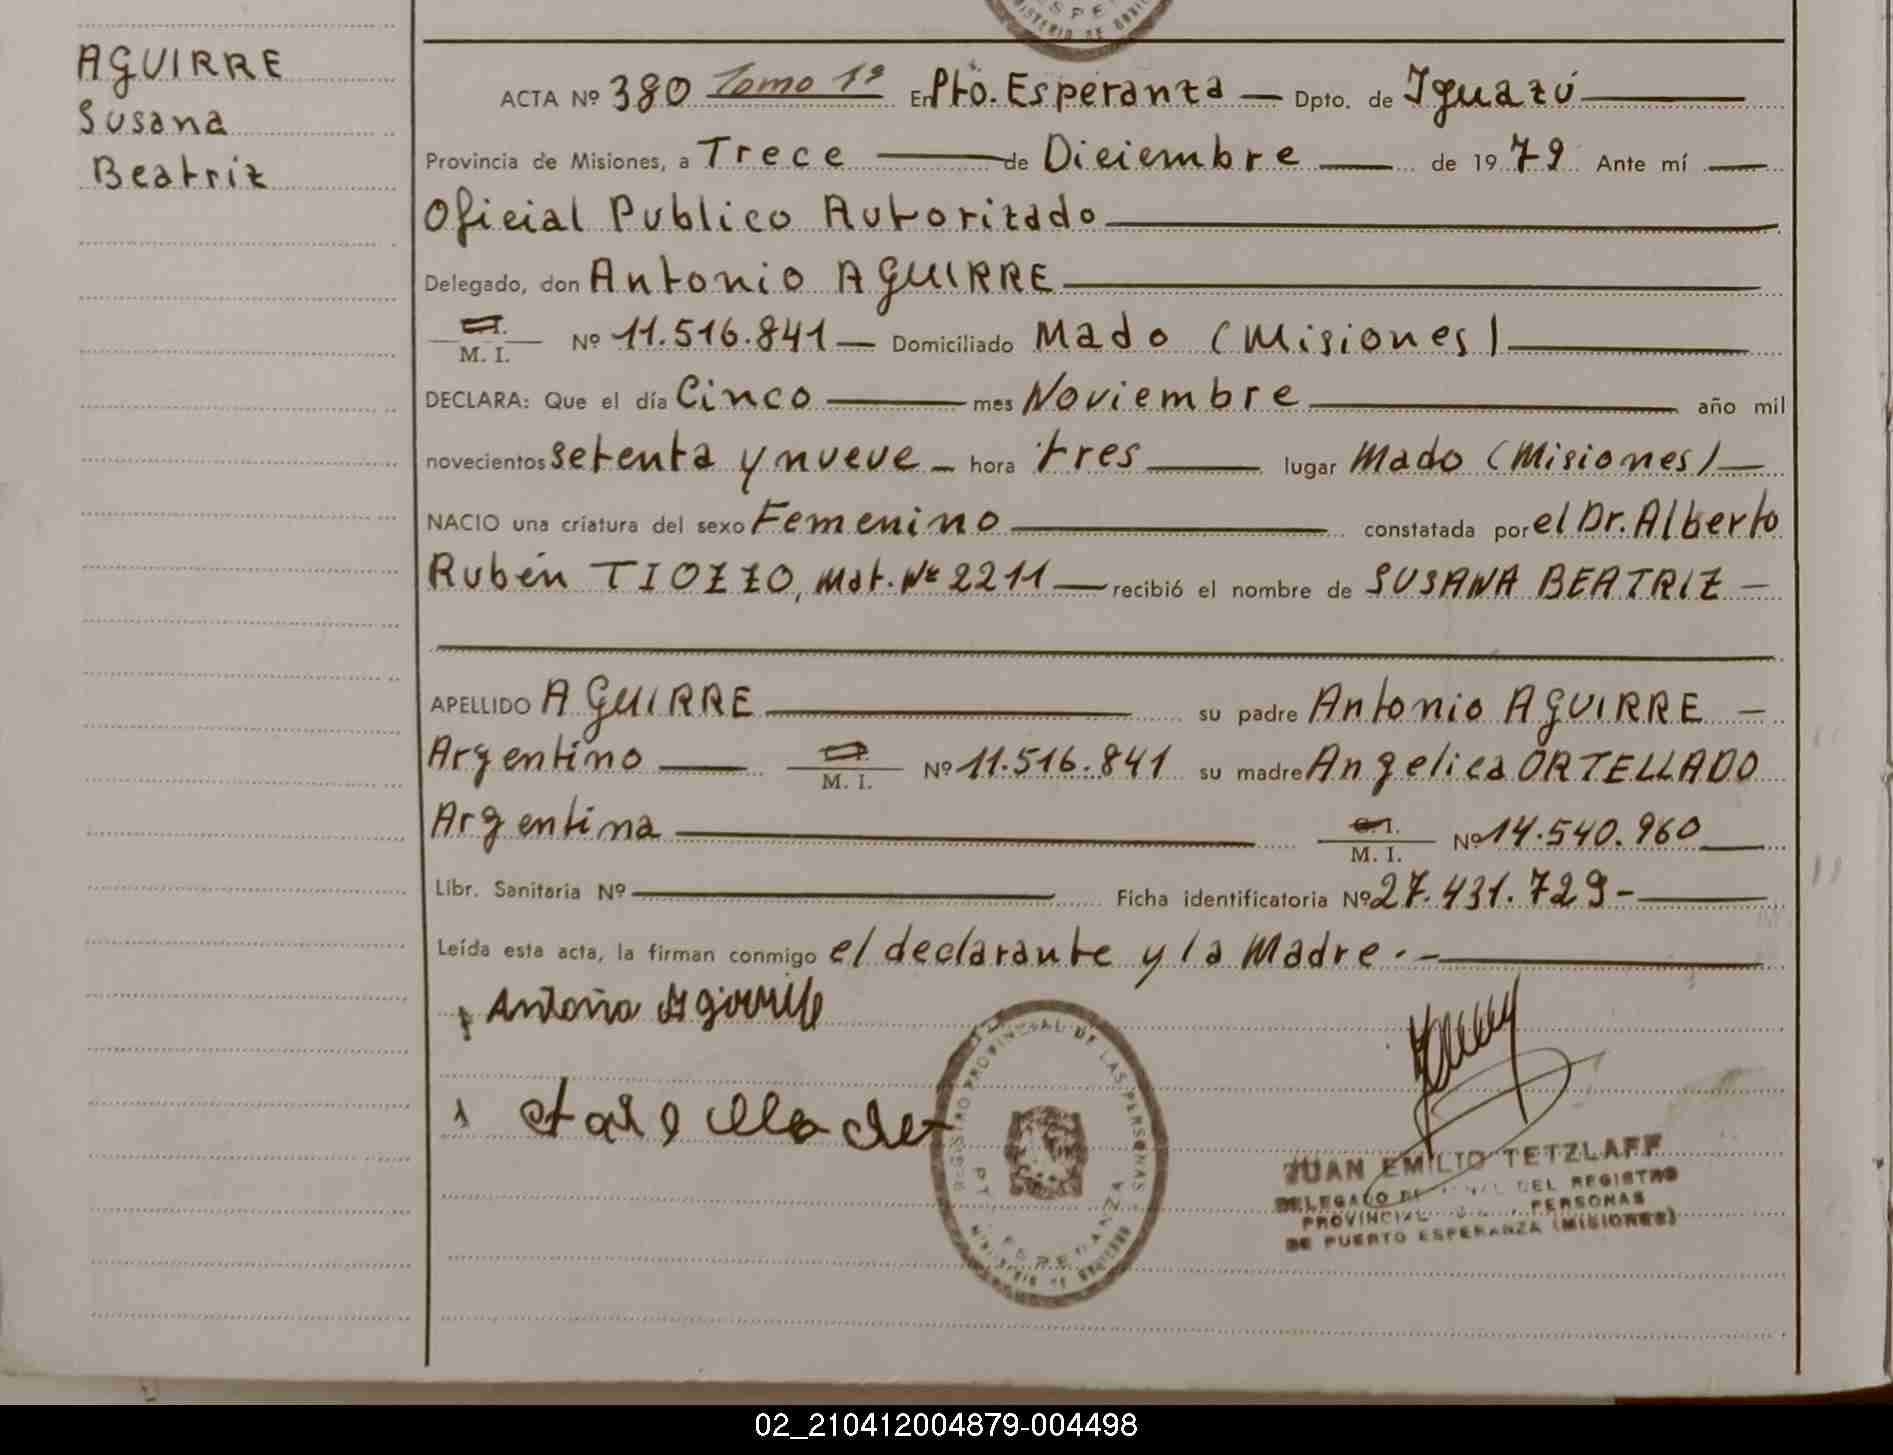 AGUIRRE
Susana
Beatriz
ACTA Nº 380 Tomo 1º En Pto. Esperanza — Dpto. de Iguazú
Provincia de Misiones, a Trece — de Diciembre — de 1979 Ante mí —
Oficial Publico Autorizado
Delegado, don Antonio AGUIRRE
M. I. Nº 11.516.841 — Domiciliado Mado (Misiones)
DECLARA: Que el día Cinco — mes Noviembre — año mil
novecientos setenta y nueve — hora tres — lugar Mado (Misiones) —
NACIO una criatura del sexo Femenino — constatada por el Dr. Alberto
Rubén TIOZZO, Mat. Nº 2211 — recibió el nombre de SUSANA BEATRIZ —
APELLIDO AGUIRRE — su padre Antonio AGUIRRE —
Argentino — M. I. Nº 11.516.841 su madre Angelica ORTELLADO
Argentina — M. I. Nº 14.540.960
Libr. Sanitaria Nº — Ficha identificatoria Nº 27.431.729 -
Leída esta acta, la firman conmigo el declarante y la Madre. -
REGISTRO PROVINCIAL DE LAS PERSONAS
PTO. ESPERANZA
MINISTERIO DE GOBIERNO
JUAN EMILIO TETZLAFF
DELEGADO DEL REGISTRO
PROVINCIAL PERSONAS
DE PUERTO ESPERANZA (MISIONES)
02_210412004879-004498